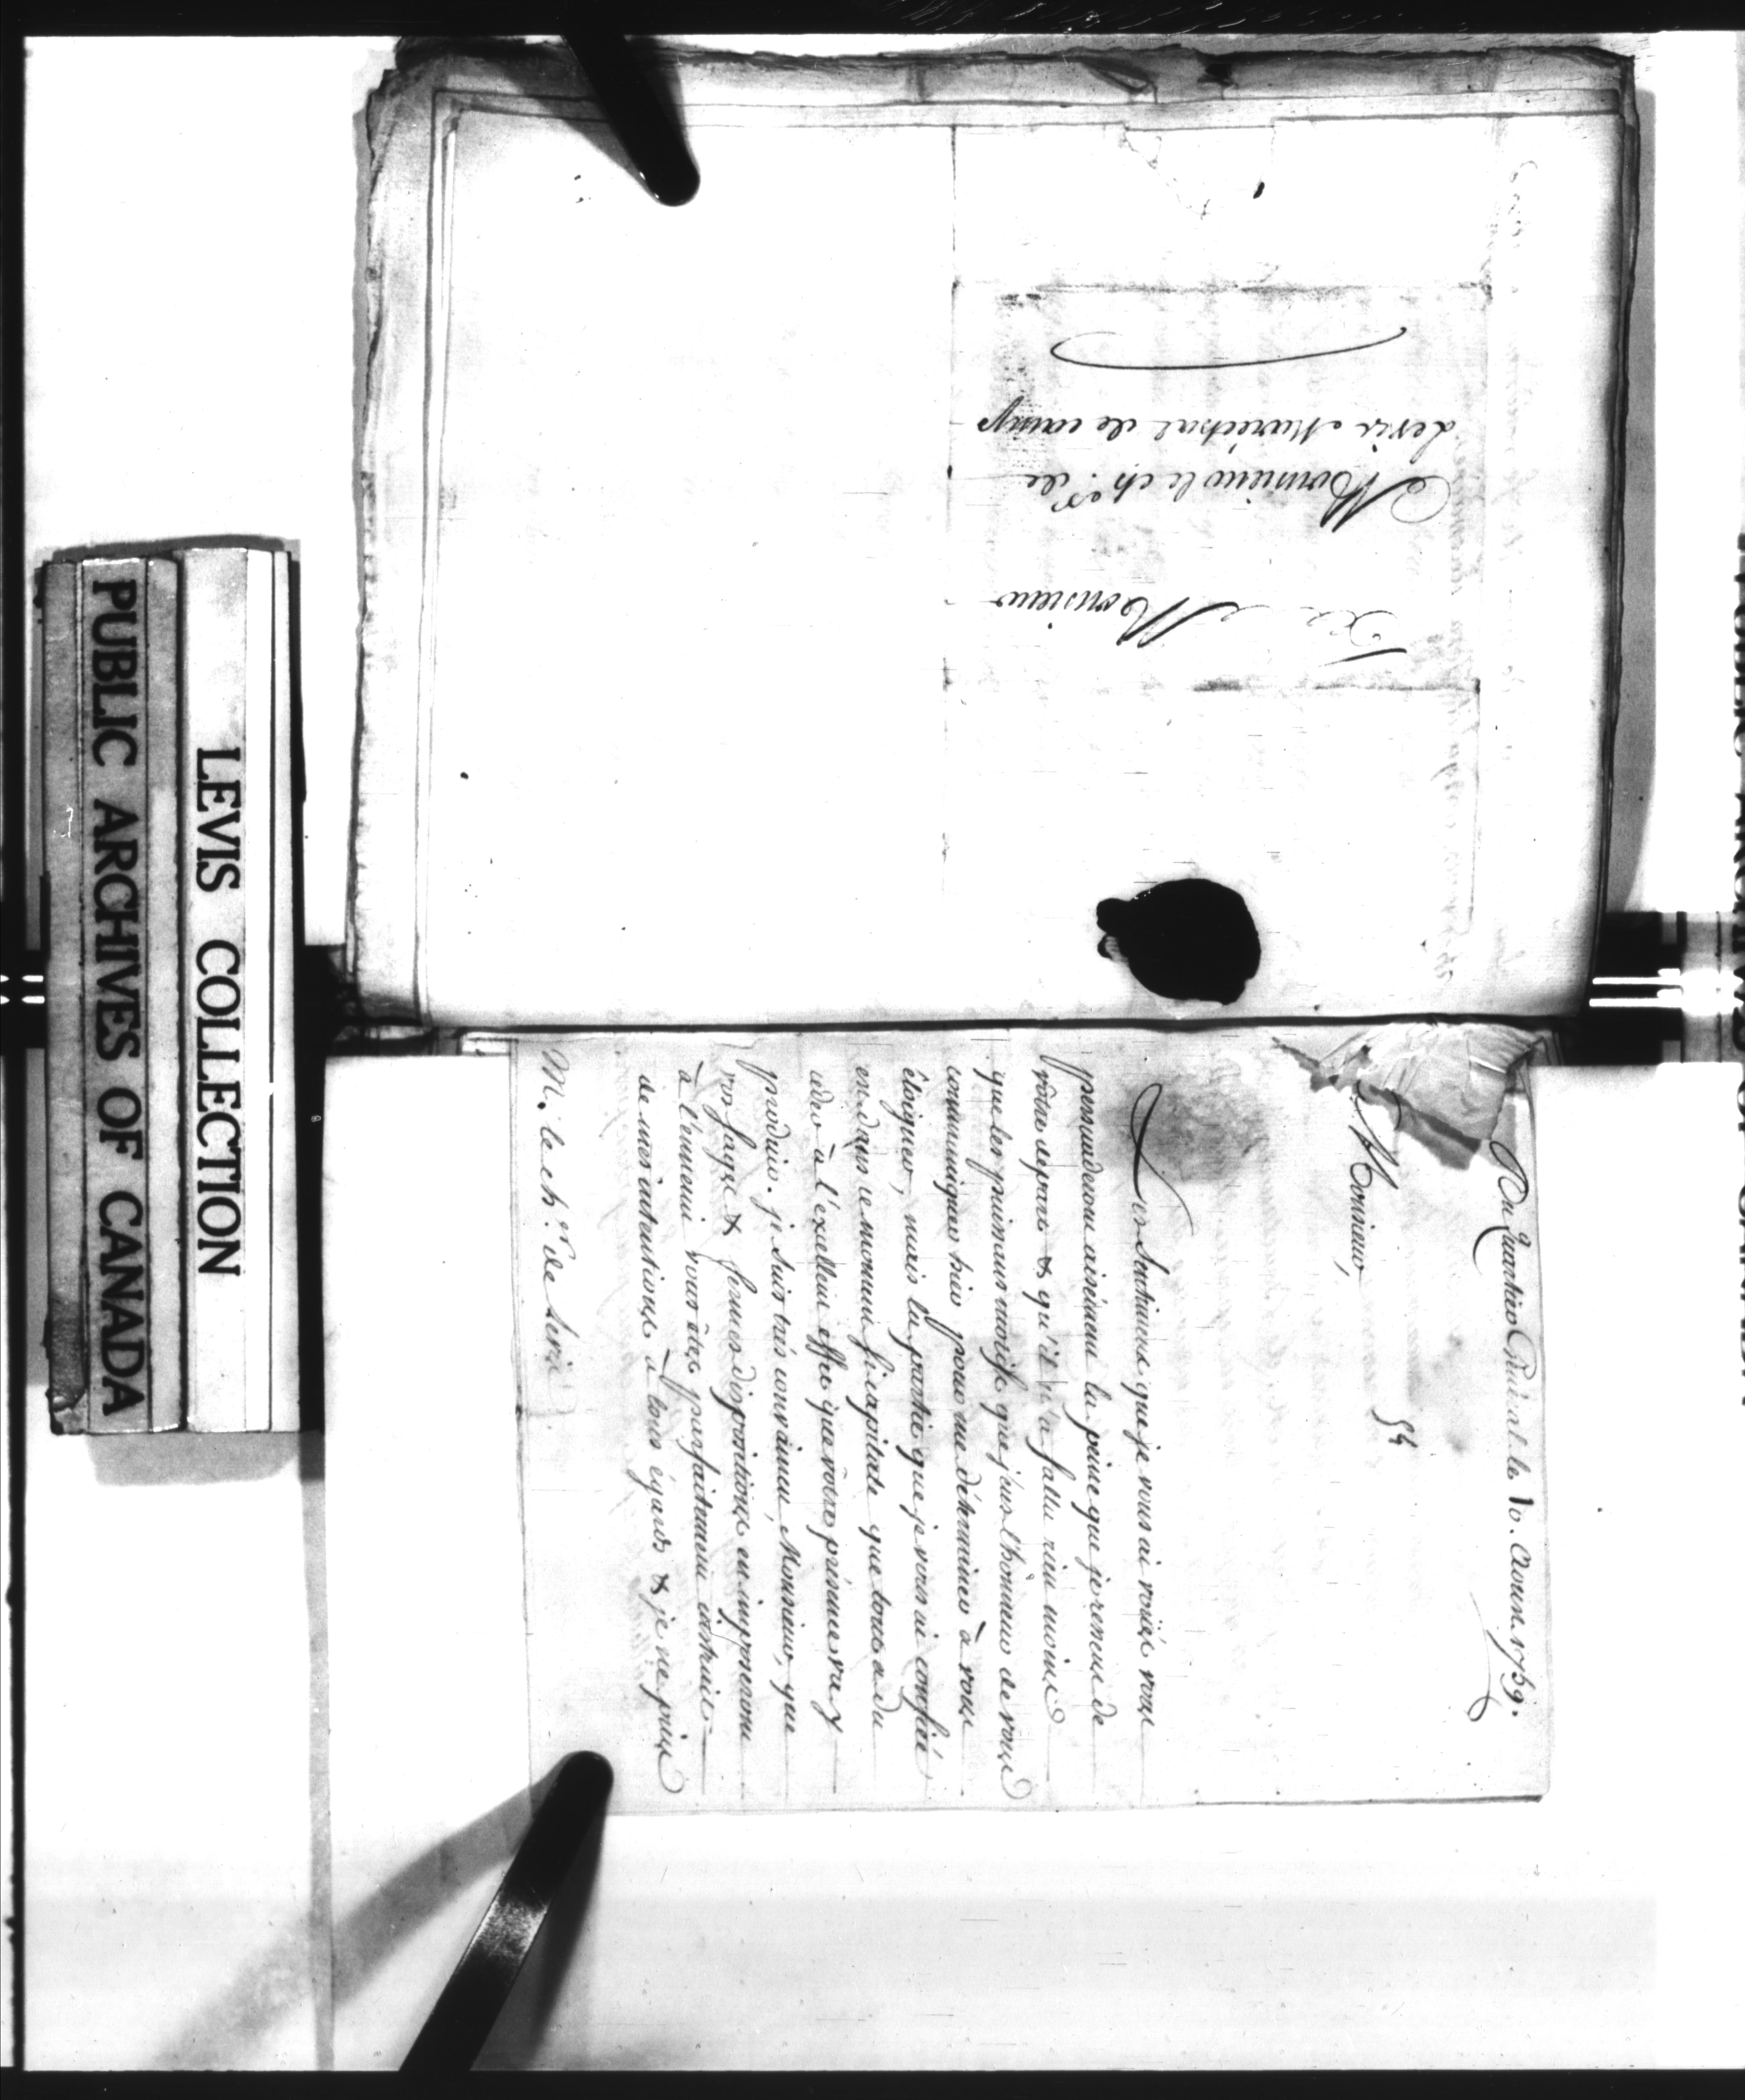 PUBLIC ARCHIVES OF CANADA
LEVIS COLLECTION
À Monsieur
Monsieur le ch.er de
Levis Maréchal de camp
Du Quartier Général le 10. Aoust 1759.
54
Monsieur,
Les Sentimens que je vous ai voüés vous
persuaderont aisément la peine que je ressens de
vôtre départ & qu'il n'a fallu rien moins
que les puissans motifs que j'eus l'honneur de vous
communiquer hier pour me déterminer à vous
éloigner, mais la partie que je vous ai confiée
en dans ce moment si capitale que tout a du
céder à l'excellent effet que vôtre présence va y
produire. je suis très convaincu, Monsieur, que
vos sages & fermes dispositions en imposeront
à l'ennemi vous êtes parfaitement instruit
de mes intentions à tous égards & je ne puis
M. le ch.er de Levis